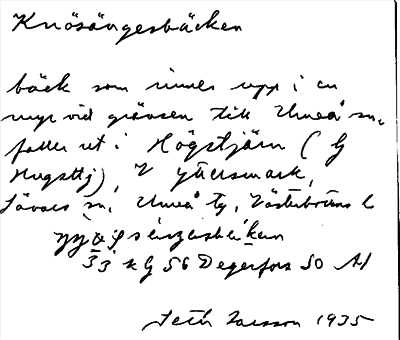 Knösängesbäcken
bäck som rinner upp i en
myr vid gränsen till Umeå sn,
faller ut i Högstjärn ( G
Hugsttj), V Yttersmark,
Sävars sn, Umeå tg, Västerbottens l
33 k G 56 Degerfors SO Al
Seth Larsson 1935